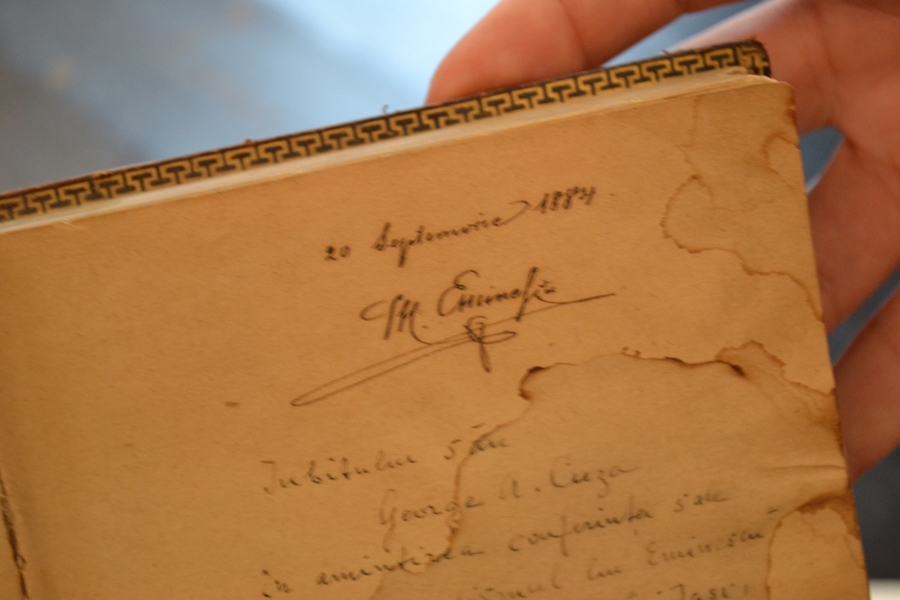 20 Septemvrie 1884.
M. Eminescu
Iubitului său
George A. Cuza
în amintirea conferinței sale
lui Eminescu
Iași,